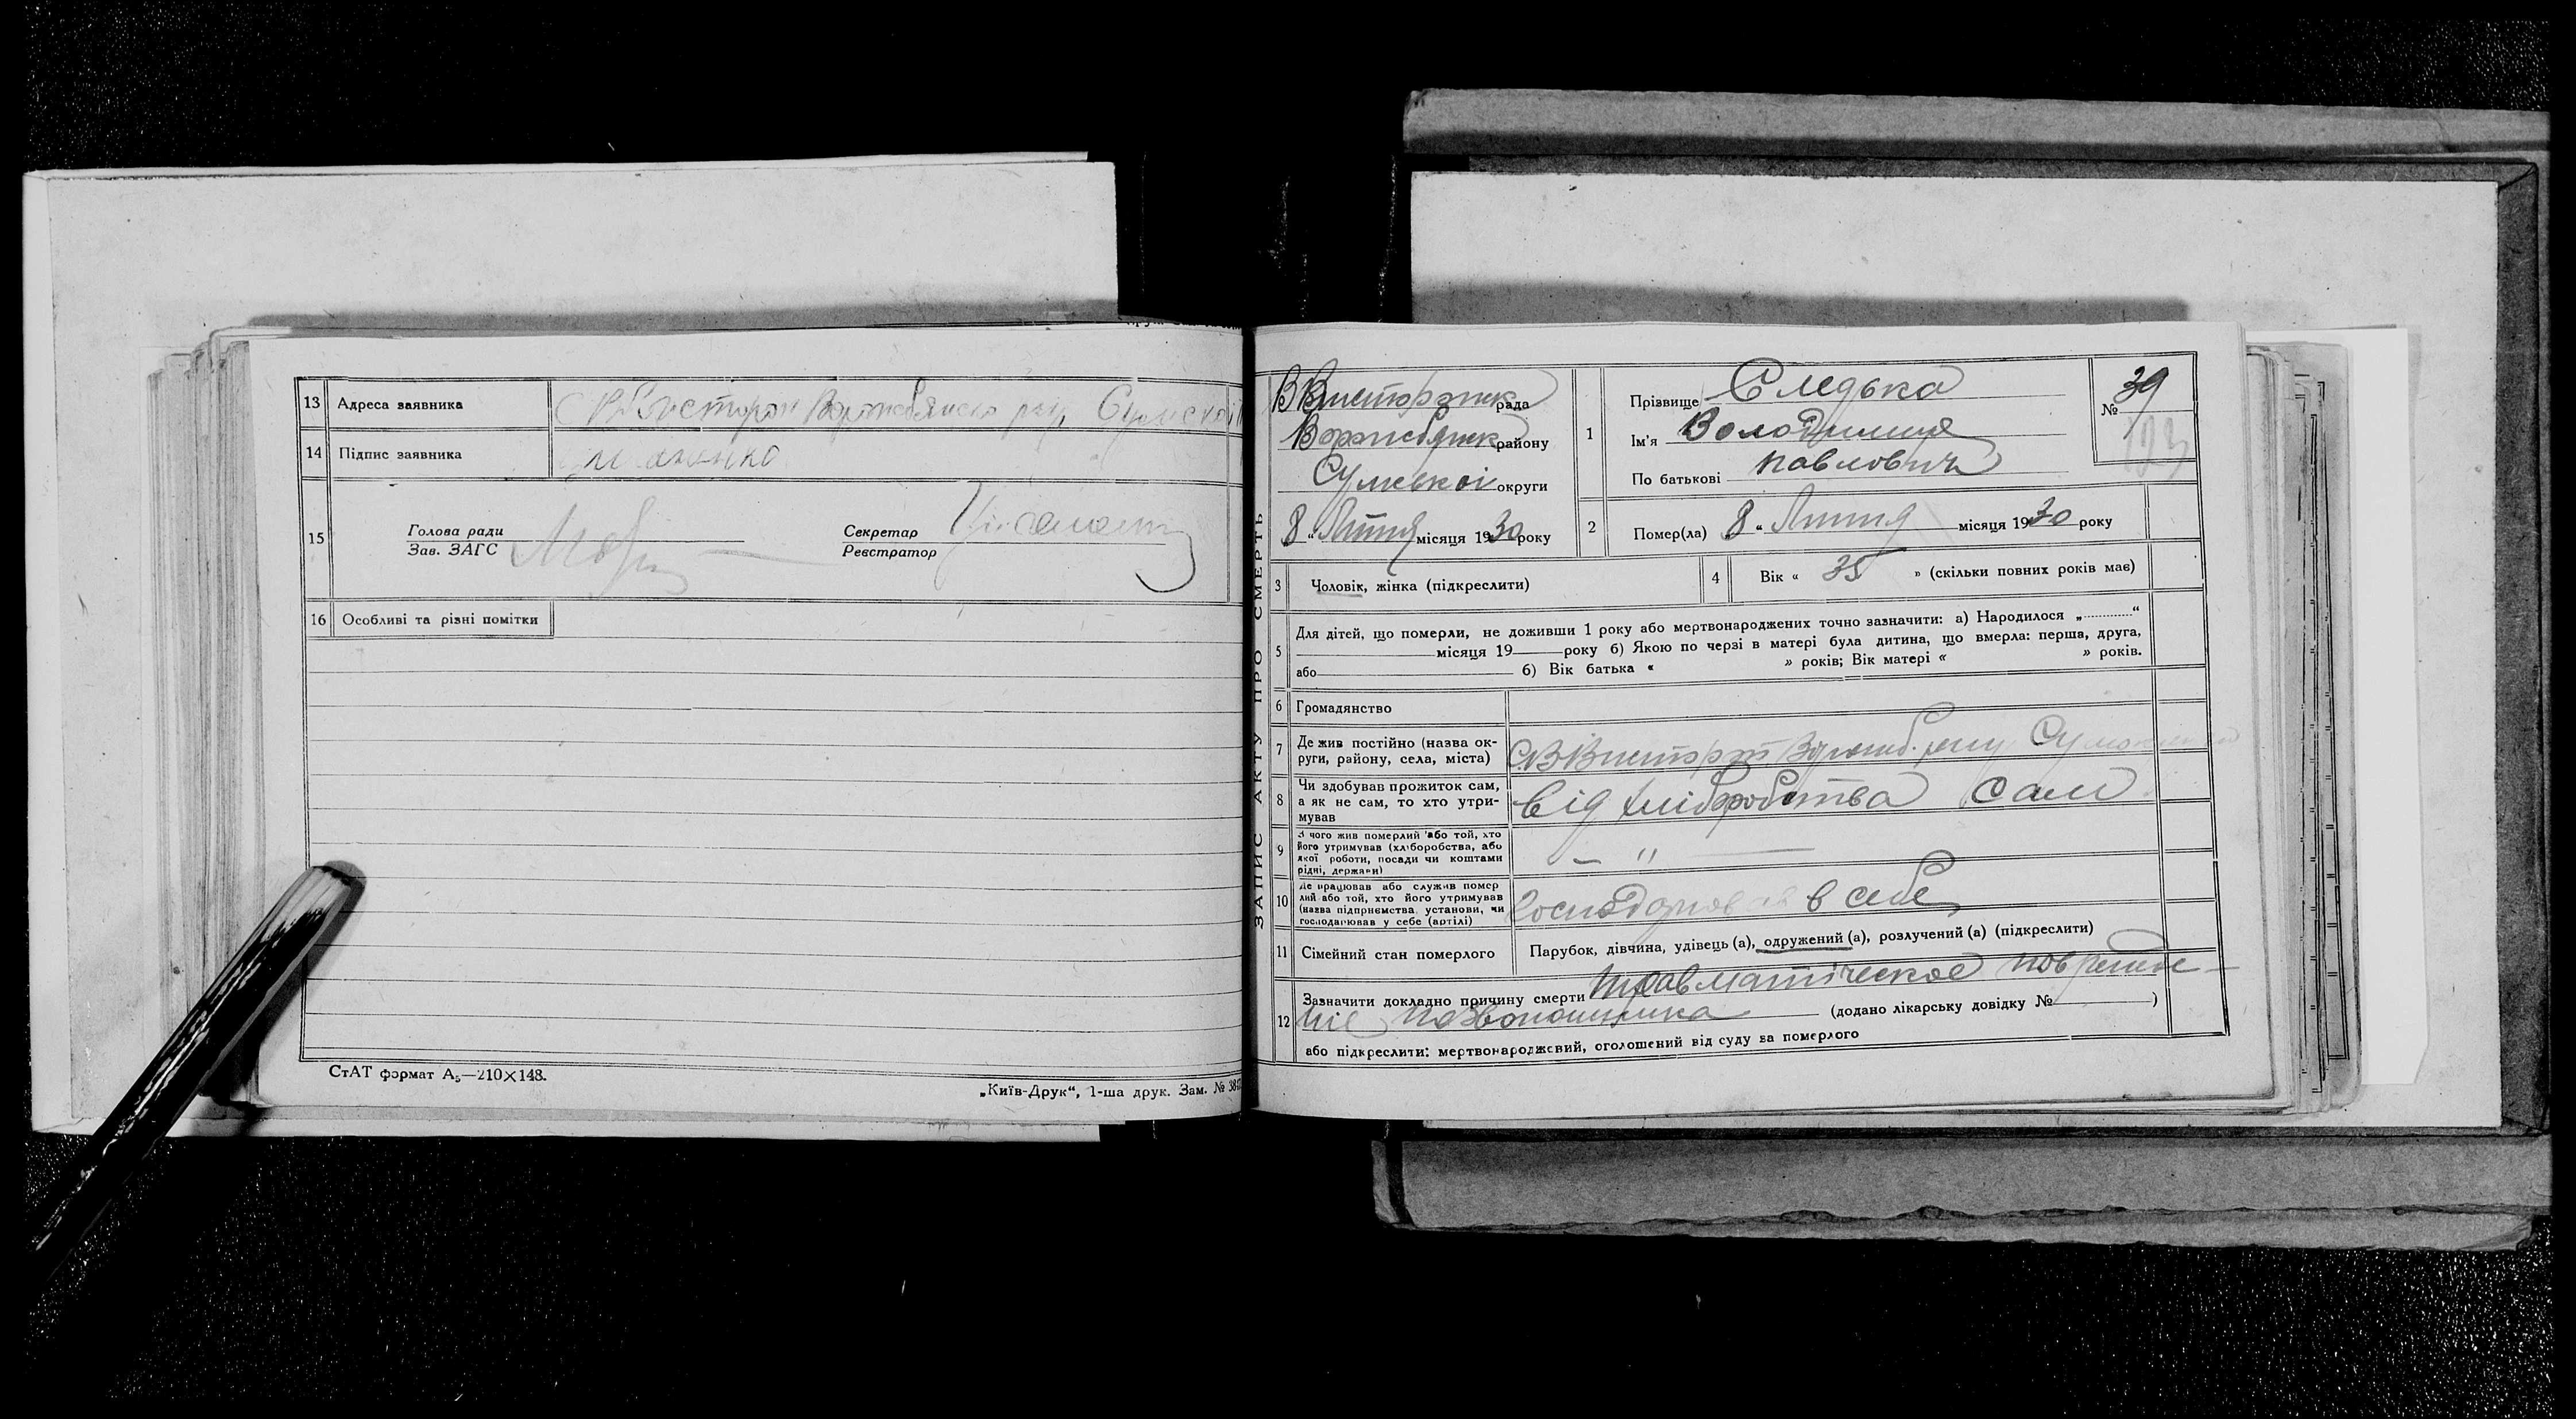 13 Адреса заявника
14 Підпис заявника
15 Голова ради
Зав. ЗАГС
Секретар
Реєстратор
16 Особливі та різні помітки
СтАТ формат А₅—210×148.
„Київ-Друк“, 1-ша друк. Зам. №
ЗАПИС АКТУ ПРО СМЕРТЬ
рада
району
Сумської округи
8 „ Липня місяця 1930 року
1 Прізвище Следько
Ім'я Володимир
По батькові Павлович
№ 39
2 Помер(ла) 8 „ Липня місяця 1930 року
3 Чоловік, жінка (підкреслити)
4 Вік « 35 » (скільки повних років має)
5 Для дітей, що померли, не доживши 1 року або мертвонароджених точно зазначити: а) Народилося „ “
місяця 19 року б) Якою по черзі в матері була дитина, що вмерла: перша, друга,
або б) Вік батька « » років; Вік матері « » років.
6 Громадянство
7 Де жив постійно (назва ок-
руги, району, села, міста)
8 Чи здобував прожиток сам,
а як не сам, то хто утри-
мував
від хліборобства сам
9 З чого жив померлий або той, хто
його утримував (хліборобства, або
якої роботи, посади чи коштами
рідні, держави)
— " —
10 Де працював або служив помер
лий або той, хто його утримував
(назва підприємства, установи, чи
господарював у себе (артілі)
Господарював в себе
11 Сімейний стан померлого
Парубок, дівчина, удівець (а), одружений (а), розлучений (а) (підкреслити)
12 Зазначити докладно причину смерти Травматическое повреждє-
ніє позвоночника (додано лікарську довідку № )
або підкреслити: мертвонароджений, оголошений від суду за померлого